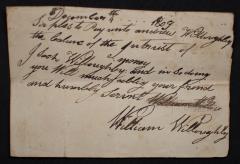 December 4th 1809
Sir please to Pay unto andrew Willoughby
the balance of the intrest of
Jacob Willoughby money and in so doing
you Will much oblige your friend
and humbly Servnt
William Willoughby